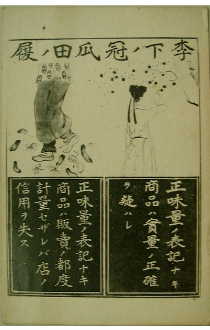 李下ノ冠瓜田ノ履
正味量ノ表記ナキ
商品ハ貫量ノ正確
ヲ疑ハレ
正味量ノ表記ナキ
商品ハ販賣ノ都度
計量セザレバ店ノ
信用ヲ失ス